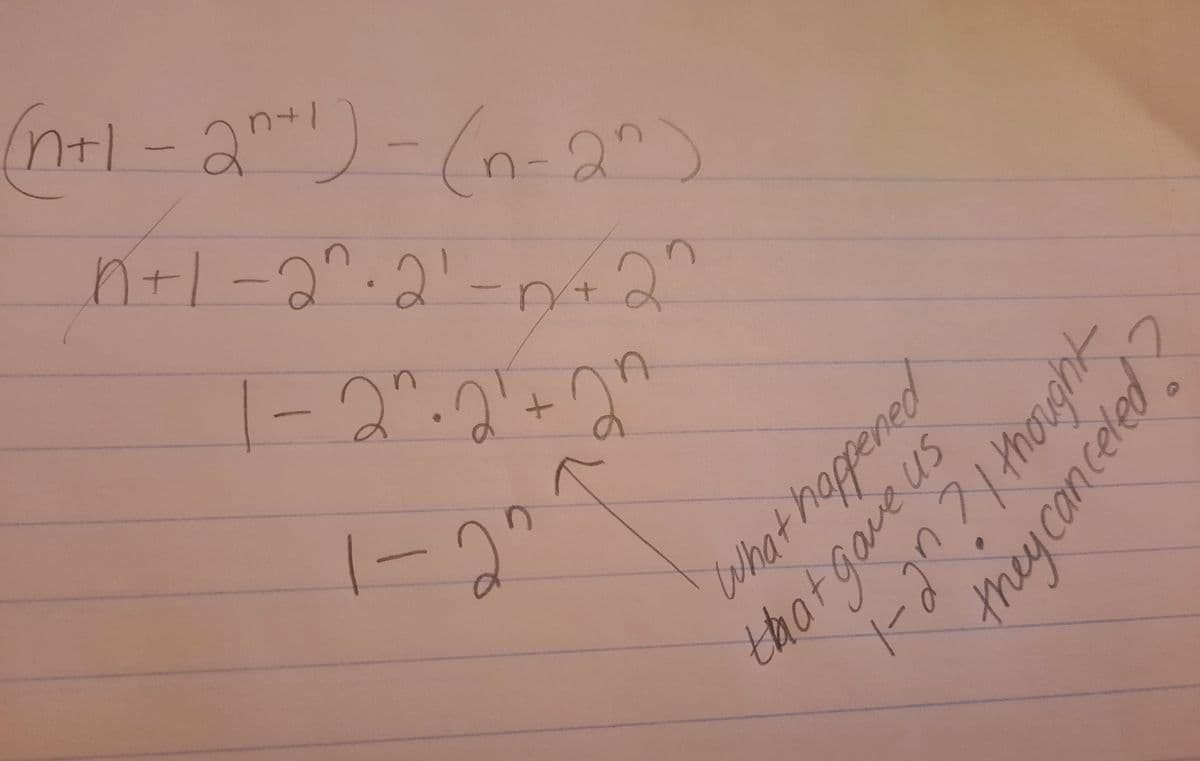 (n+1 - 2ⁿ⁺¹) - (n - 2ⁿ)
n+1 - 2ⁿ · 2¹ - n + 2ⁿ
1 - 2ⁿ · 2¹ + 2ⁿ
1 - 2ⁿ
what happened
that gave us
1 - 2ⁿ? I thought
they canceled?